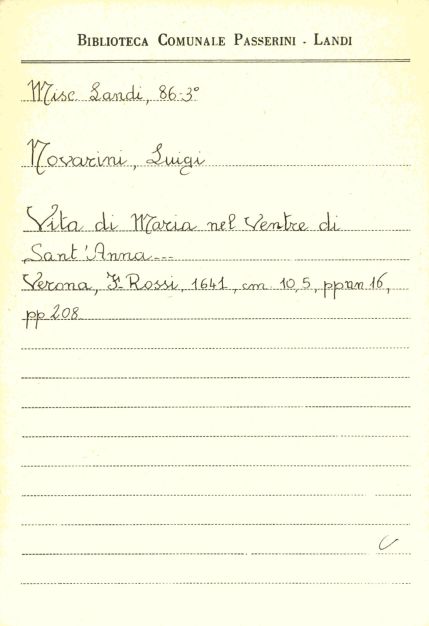 BIBLIOTECA COMUNALE PASSERINI - LANDI
Misc. Landi, 86-3°
Novarini, Luigi
Vita di Maria nel Ventre di
Sant'Anna...
Verona, F. Rossi, 1641, cm. 10,5, pp.nn 16,
pp 208